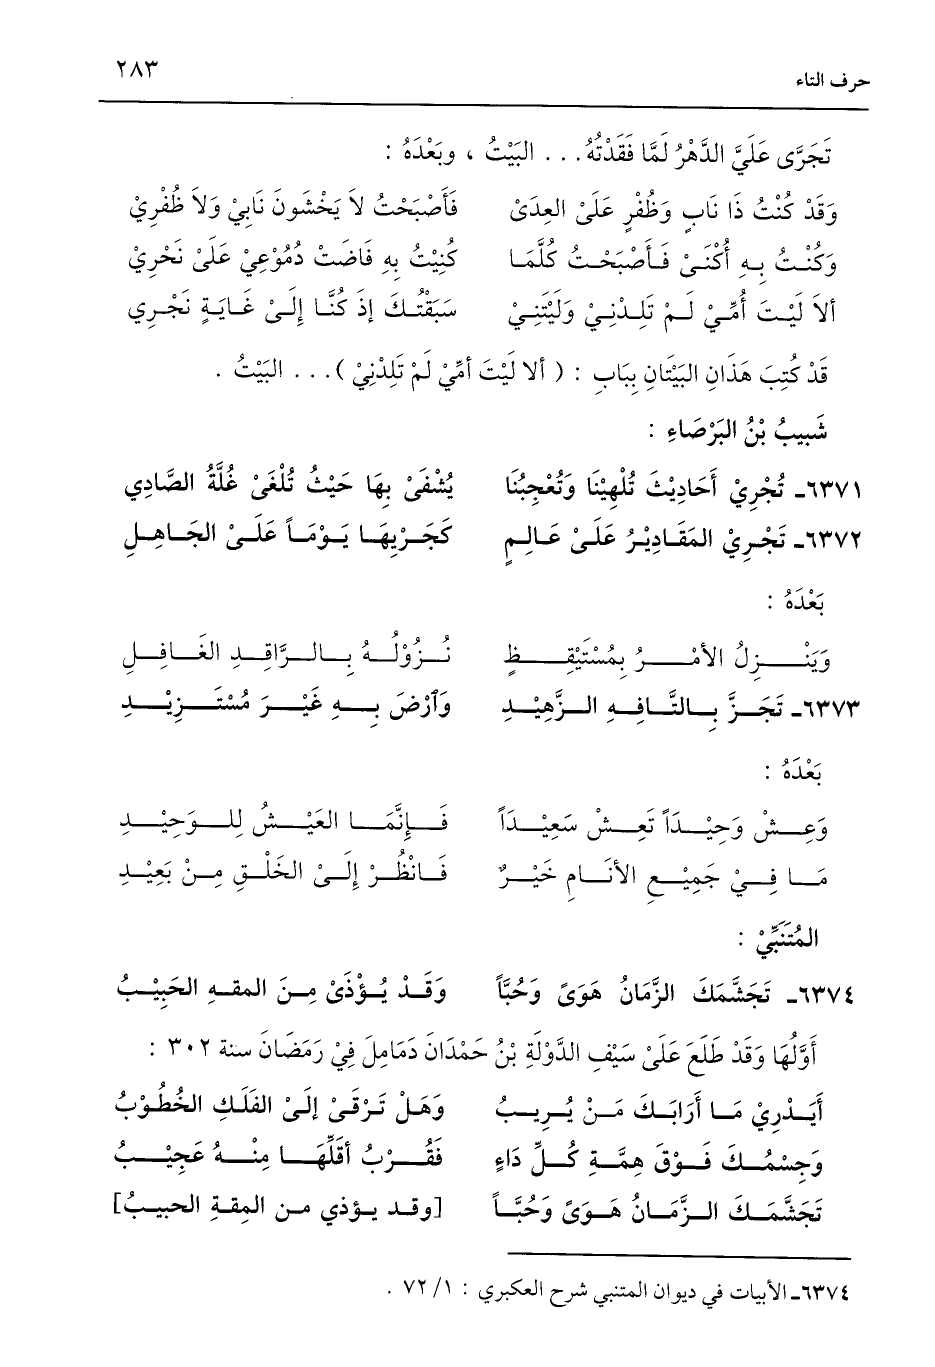 حرف التاء ٢٨٣
تَجَرَّى عَلَيَّ الدَّهْرُ لَمَّا فَقَدْتُهُ . . . البَيْتُ ، وبَعْدَهُ :
وَقَدْ كُنْتُ ذَا نَابٍ وَظُفْرٍ عَلَىْ العِدَىْ فَأَصْبَحْتُ لاَ يَخْشَونَ نَابِيْ وَلاَ ظُفْرِيْ
وَكُنْتُ بِهِ أُكْنَىْ فَأَصْبَحْتُ كُلَّمَا كُنِيْتُ بِهِ فَاضَتْ دُمُوْعِيْ عَلَىْ نَحْرِيْ
ألاَ لَيْتَ أُمِّيْ لَمْ تَلِدْنِيْ وَلَيْتَنِيْ سَبَقْتُكَ إذْ كُنَّا إلَىْ غَايَةٍ نَجْرِي
قَدْ كُتِبَ هَذَانِ البَيْتَانِ بِبَابِ : ( ألا لَيْتَ أمِّيْ لَمْ تَلِدْنِيْ ) . . . البَيْتُ .
شَبِيبُ بْنُ البَرْصَاءِ :
٦٣٧١ـ تُجْرِيْ أَحَادِيْثَ تُلْهِيْنَا وَتُعْجِبُنَا يُشْفَىْ بِهَا حَيْثُ تُلْغَىْ غُلَّةُ الصَّادِي
٦٣٧٢ـ تَجْرِيْ المَقَادِيْرُ عَلَىْ عَالِمٍ كَجَرْيِهَا يَوْمَاً عَلَىْ الجَاهِلِ
بَعْدَهُ :
وَيَنْزِلُ الأمْرُ بِمُسْتَيْقِظٍ نُزُوْلُهُ بِالرَّاقِدِ الغَافِلِ
٦٣٧٣ـ تَجَزَّ بِالتَّافِهِ الزَّهِيْدِ وَآرْضَ بِهِ غَيْرَ مُسْتَزِيْدِ
بَعْدَهُ :
وَعِشْ وَحِيْدَاً تَعِشْ سَعِيْدَاً فَإِنَّمَا العَيْشُ لِلوَحِيْدِ
مَا فِيْ جَمِيْعِ الأنَامِ خَيْرٌ فَانْظُرْ إلَىْ الخَلْقِ مِنْ بَعِيْدِ
المُتَنَبِّيْ :
٦٣٧٤ـ تَجَشَّمَكَ الزَّمَانُ هَوَىً وَحُبَّاً وَقَدْ يُؤْذَىْ مِنَ المقهِ الحَبِيْبُ
أَوَّلُهَا وَقَدْ طَلَعَ عَلَىْ سَيْفِ الدَّوْلَةِ بْنُ حَمْدَانَ دَمَامِلَ فِيْ رَمَضَانَ سنة ٣٠٢ :
أَيَدْرِيْ مَا أَرَابَكَ مَنْ يُرِيبُ وَهَلْ تَرْقَىْ إلَىْ الفَلَكِ الخُطُوْبُ
وَجِسْمُكَ فَوْقَ هِمَّةِ كُلِّ دَاءٍ فَقُرْبُ أقَلِّهَا مِنْهُ عَجِيْبُ
تَجَشَّمَكَ الزَّمَانُ هَوَىً وَحُبَّاً [وقد يؤذي من المِقةِ الحبيبُ]
٦٣٧٤ـ الأبيات في ديوان المتنبي شرح العكبري : ١/ ٧٢ .